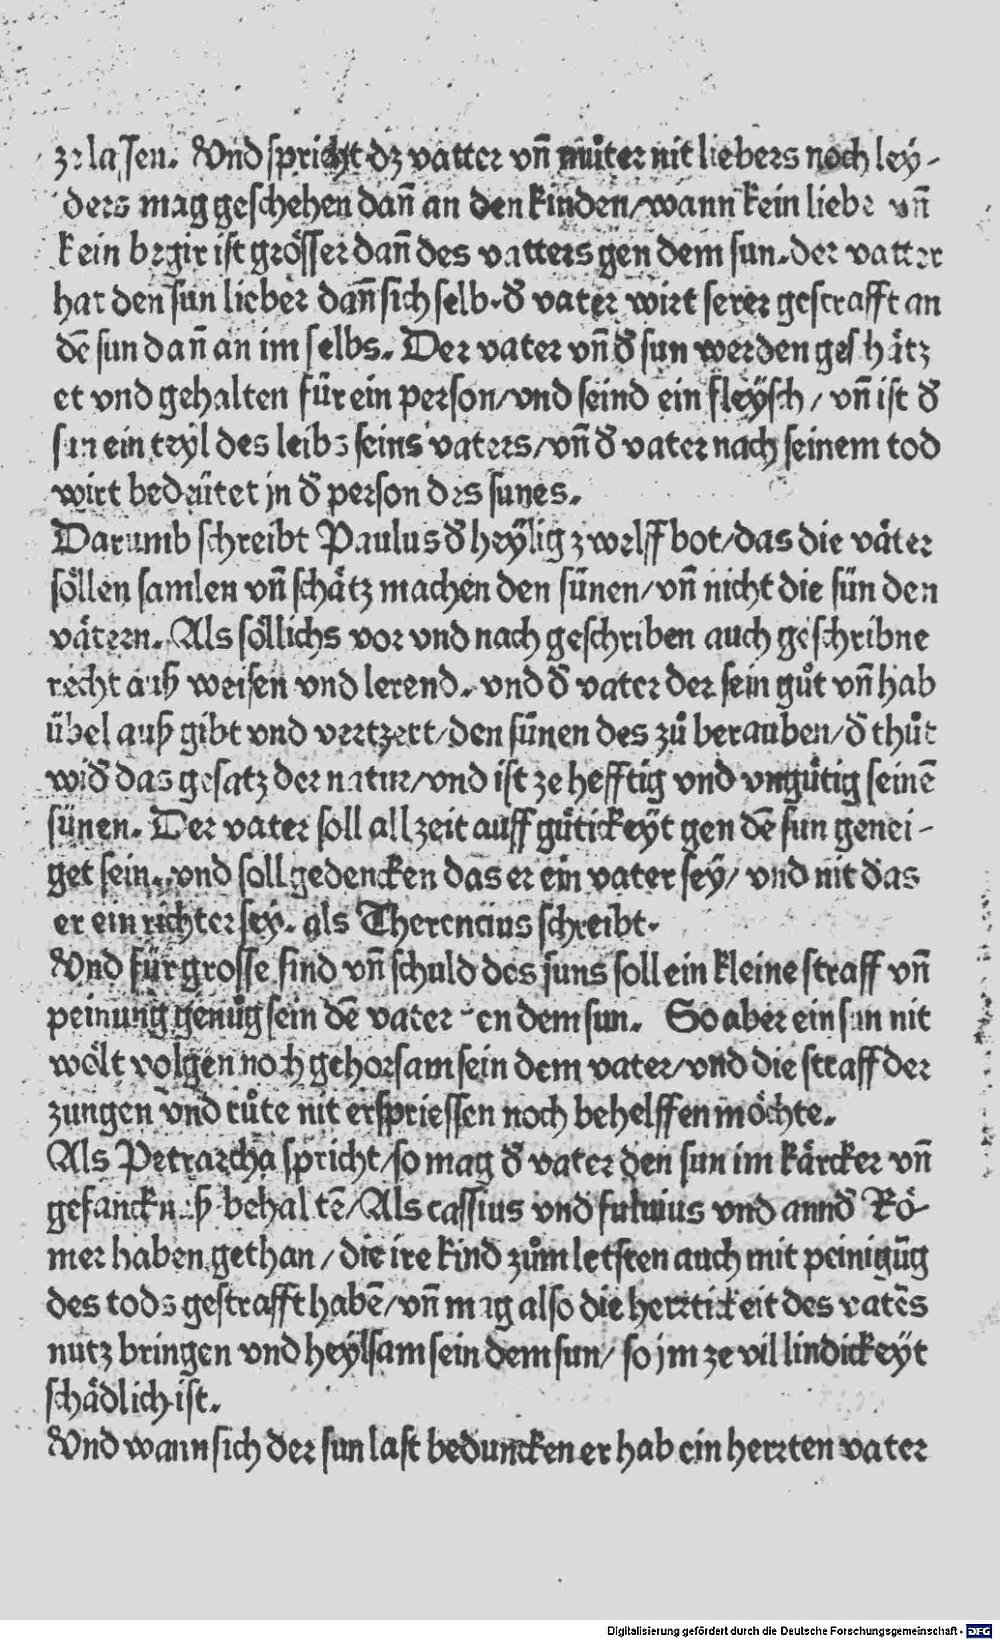 zelassen. Und spricht dz vatter vn̄ můter nit liebers noch ley-
ders mag geschehen dañ an den kinden/wann kein liebe vn̄
kein begir ist grösser dañ des vatters gen dem sun. der vatter
hat den sun lieber dañ sich selb. đ vater wirt serer gestrafft an
dē sun dañ an im selbs. Der vater vn̄ đ sun werden geschätz
et vnd gehalten für ein person/vnd seind ein fleÿsch/ vn̄ ist đ
sun ein teyl des leibs seins vaters/vn̄ đ vater nach seinem tod
wirt bedeütet jn đ person des sunes.
Darumb schreibt Paulus đ heÿlig zwelffbot/das die väter
söllen samlen vn̄ schätz machen den sünen/vn̄ nicht die sün den
vätern. Als söllichs vor vnd nach geschriben auch geschribne
recht auß weisen vnd lerend. vnd đ vater der sein gůt vn̄ hab
übel auß gibt vnd vertzert/den sünen des zů berauben/đ thůt
wiđ das gesatz der natur/vnd ist ze hefftig vnd vngütig seinē
sünen. Der vater soll allzeit auff gütickeÿt gen dē sun genei-
get sein. vnd soll gedencken das er ein vater seÿ/ vnd nit das
er ein richter seÿ. als Therencius schreibt.
Und für grosse sind vn̄ schuld des suns soll ein kleine straff vn̄
peinung genůg sein dē vater gen dem sun. So aber ein sun nit
wölt volgen noch gehorsam sein dem vater/vnd die straff der
zungen vnd růte nit erspriessen noch behelffen möchte.
Als Petrarcha spricht/so mag đ vater den sun im kärcker vn̄
gefancknuß behaltē/Als cassius vnd fuluius vnd annđ Rö-
mer haben gethan/die ire kind zům letsten auch mit peinigūg
des tods gestrafft habē/vn̄ mag also die herttickeit des vatērs
nutz bringen vnd heÿlsam sein dem sun/ so jm ze vil lindickeÿt
schädlich ist.
Und wann sich der sun last beduncken er hab ein herrten vater
Digitalisierung gefördert durch die Deutsche Forschungsgemeinschaft - DFG